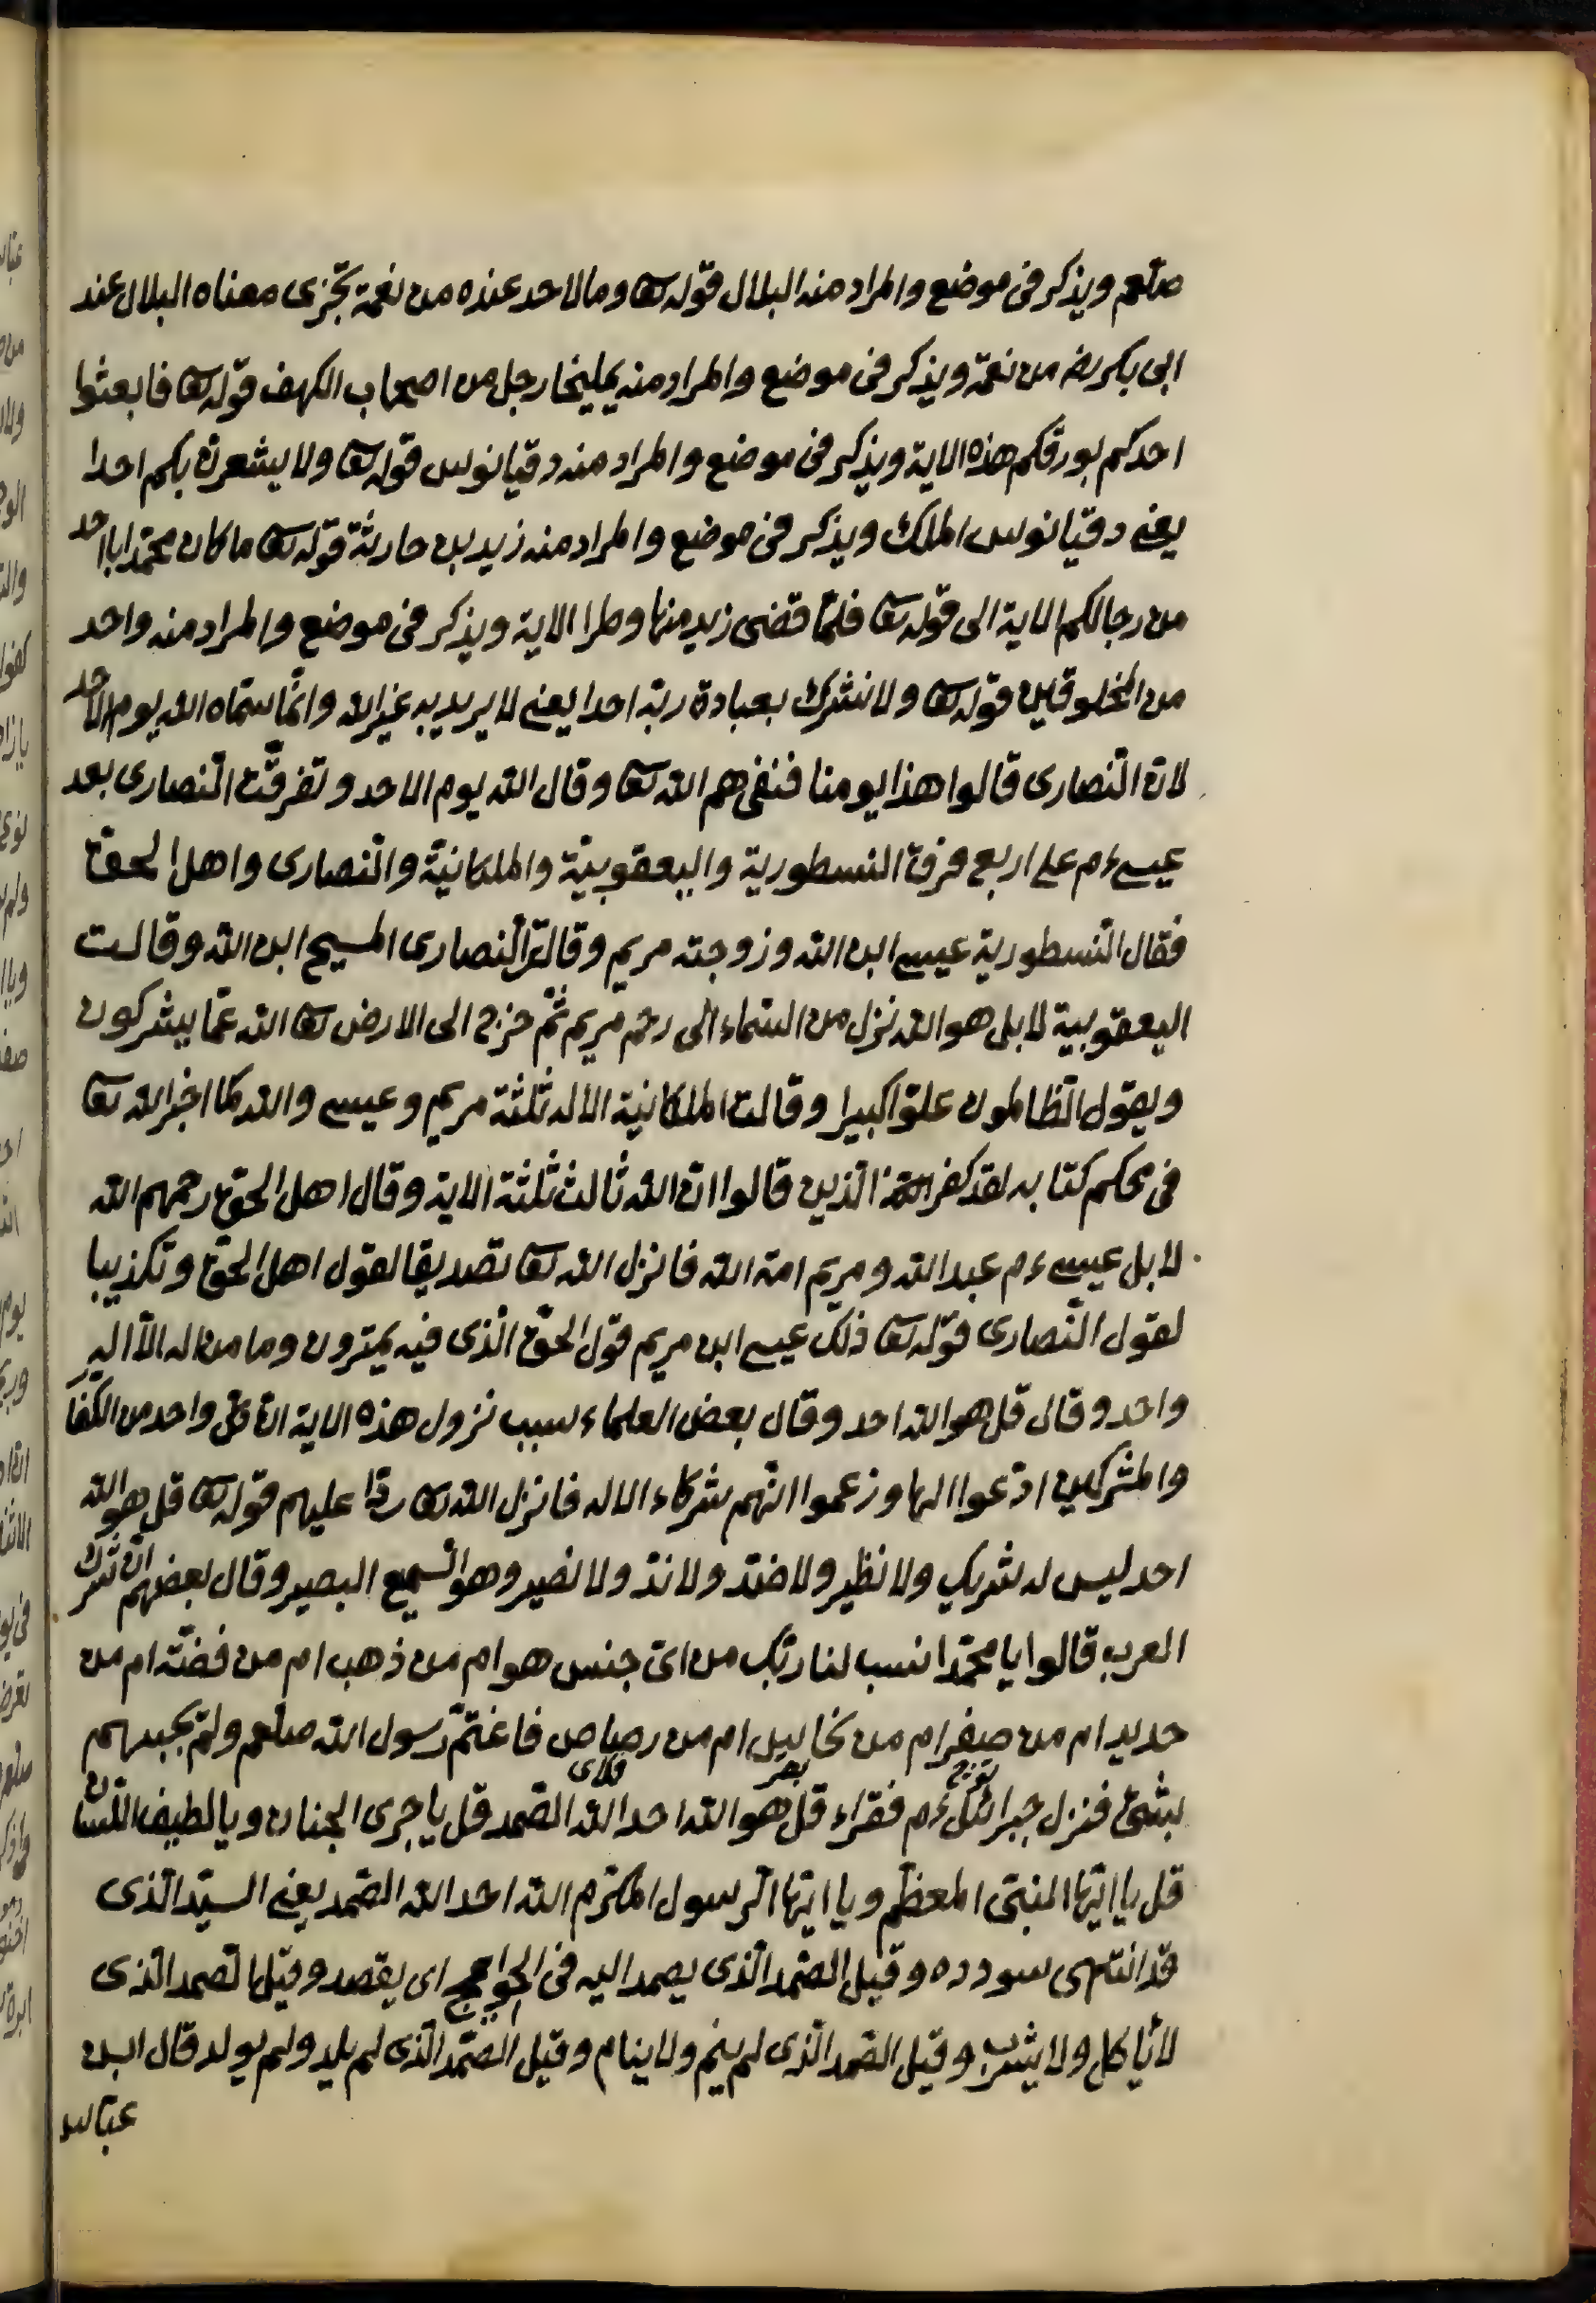 صلعم ويذكر فى موضع والمراد منه البلال قوله تعا وما لاحد عنده من نعمة تجزى معناه البلال عند
ابى بكر رضه من نعمة ويذكر فى موضع والمراد منه يمليخا رجل من اصحاب الكهف قوله تعا فابعثوا
احدكم بورقكم هذه الاية ويذكر فى موضع والمراد منه دقيانوس قوله تعا ولا يشعرن بكم احدا
يعنى دقيانوس الملك ويذكر فى موضع والمراد منه زيد بن حارثة قوله تعا ما كان محمد ابا احد
من رجالكم الاية الى قوله تعا فلما قضى زيد منها وطرا الاية ويذكر فى موضع والمراد منه واحد
من المخلوقين قوله تعا ولا نشرك بعبادة ربه احدا يعنى لا يريد به غير الله وانما سماه الله يوم الاحد
لان النصارى قالوا هذا يومنا فنفى هم الله تعا وقال الله يوم الاحد وتفرقت النصارى بعد
عيسى ءم على اربع فرق النسطورية واليعقوبية والملكانية والنصارى واهل الحق
فقال النسطورية عيسى ابن الله وزوجته مريم وقالت النصارى المسيح ابن الله وقالت
اليعقوبية لا بل هو الله نزل من السماء الى رحم مريم ثم خرج الى الارض تعا الله عما يشركون
ويقول الظالمون علوا كبيرا وقالت الملكانية الاله ثلثة مريم وعيسى والله كما اخبر الله تعا
فى محكم كتابه لقد كفر الذين قالوا ان الله ثالث ثلثة الاية وقال اهل الحق رحمهم الله
لا بل عيسى ءم عبد الله ومريم امة الله فانزل الله تعا تصديقا لقول اهل الحق وتكذيبا
لقول النصارى قوله تعا ذلك عيسى ابن مريم قول الحق الذى فيه يمترون وما من اله الا اله
واحد وقال قل هو الله احد وقال بعض العلماء سبب نزول هذه الاية ان كل واحد من الكفا
والمشركين ادعوا الها وزعموا انهم شركاء الاله فانزل الله تعا ردا عليهم قوله تعا قل هو الله
احد ليس له شريك ولا نظير ولا ضد ولا ند ولا نصير وهو السميع البصير وقال بعضهم ان شرك
العرب قالوا يا محمد انسب لنا ربك من اى جنس هو ام من ذهب ام من فضة ام من
حديد ام من صفر ام من نحا ام من رصاص فاغتم رسول الله صلعم ولم يجبهم
بشئ فنزل جبرائل ءم فقراء قل هو الله احد الله الصمد قل يا جرى الجنان ويا لطيف اللسان
قل يا ايها النبى المعظم ويا ايها الرسول المكرم الله احد الله الصمد يعنى السيد الذى
قد انتهى سودده وقيل الصمد الذى يصمد اليه فى الحوايج اى يقصد وقيل الصمد الذى
لا يأكل ولا يشرب وقيل الصمد الذى لم ينم ولا ينام وقيل الصمد الذى لم يلد ولم يولد قال ابن
عباس